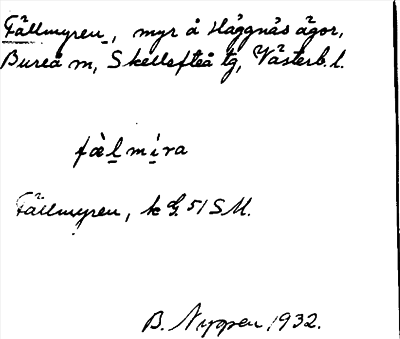 Fällmyren, myr å Häggnäs ägor,
Bureå m, Skellefteå tg, Västerb. l.
fæ̀lmíra
Fällmyren, k G. 51 S M.
B. Nyppen, 1932.